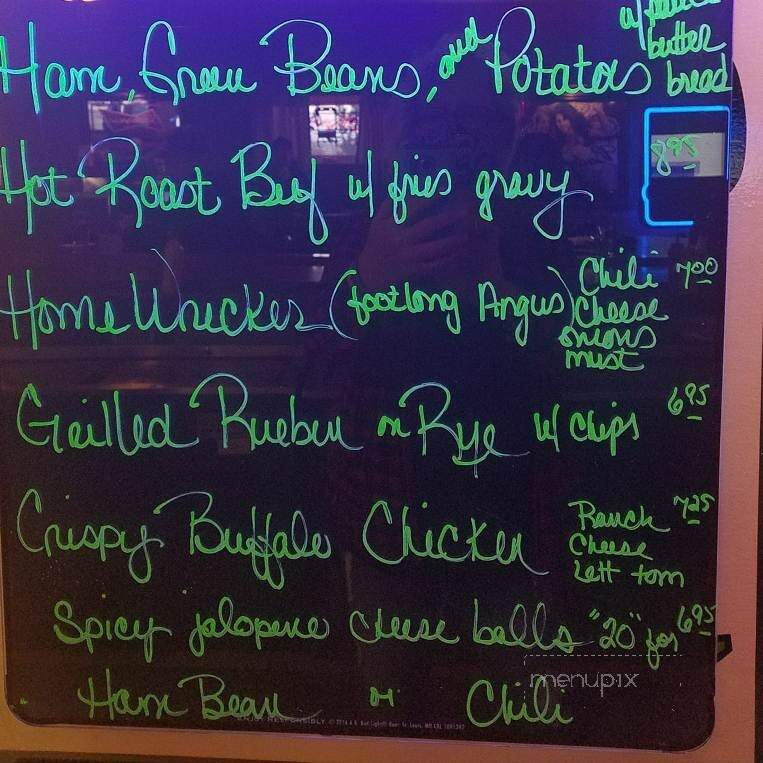 Ham, Green Beans, and Potatoes
butter
bread
Hot Roast Beef w/ fries gravy 8 95
HomeWrecker (footlong Angus) Chili 7 00
Cheese
onions
must
Grilled Rueben on Rye w/ chips 6 95
Crispy Buffalo Chicken Ranch 7 25
Cheese
Lett tom
Spicy jalopeno cheese balls "20" for 6 95
menupix
Ham Bean or Chili
ENJOY RESPONSIBLY